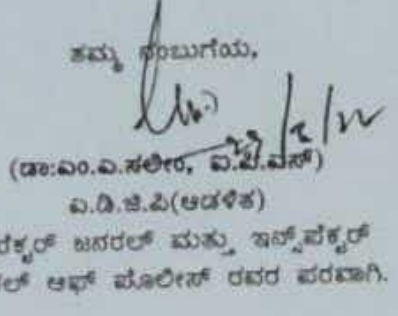 ತಮ್ಮ ನಂಬುಗೆಯ,
(ಡಾ:ಎಂ.ಎ.ಸಲೀಂ, ಐ.ಪಿ.ಎಸ್)
ಎ.ಡಿ.ಜಿ.ಪಿ(ಆಡಳಿತ)
ಜನರಲ್ ಮತ್ತು ಇನ್ಸ್‌ಪೆಕ್ಟರ್
ಆಫ್ ಪೊಲೀಸ್ ರವರ ಪರವಾಗಿ.